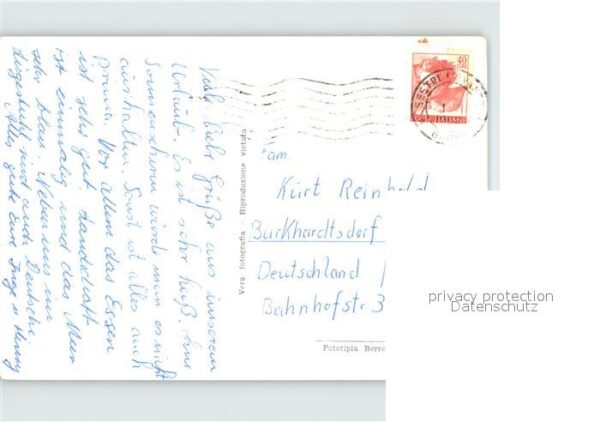 Viele liebe Grüße aus unserem
Urlaub. Es ist sehr heiß. Am
Sonnenschirm würde man es nicht
aushalten. Sonst ist alles auch
prima. Vor allem das Essen
ist sehr gut. Landschaft
ist einmalig und das Meer
sehr blau. Neben uns im
Liegestuhl sind auch Deutsche.
Alles gute Eure Inge u. Henry
Vera fotografia - Riproduzione vietata
40
SESTRI
ITALIANE
am
Kurt Reinhold
Burkhardtsdorf
Deutschland
Bahnhofstr. 3
Fototipia Berre
privacy protection
Datenschutz